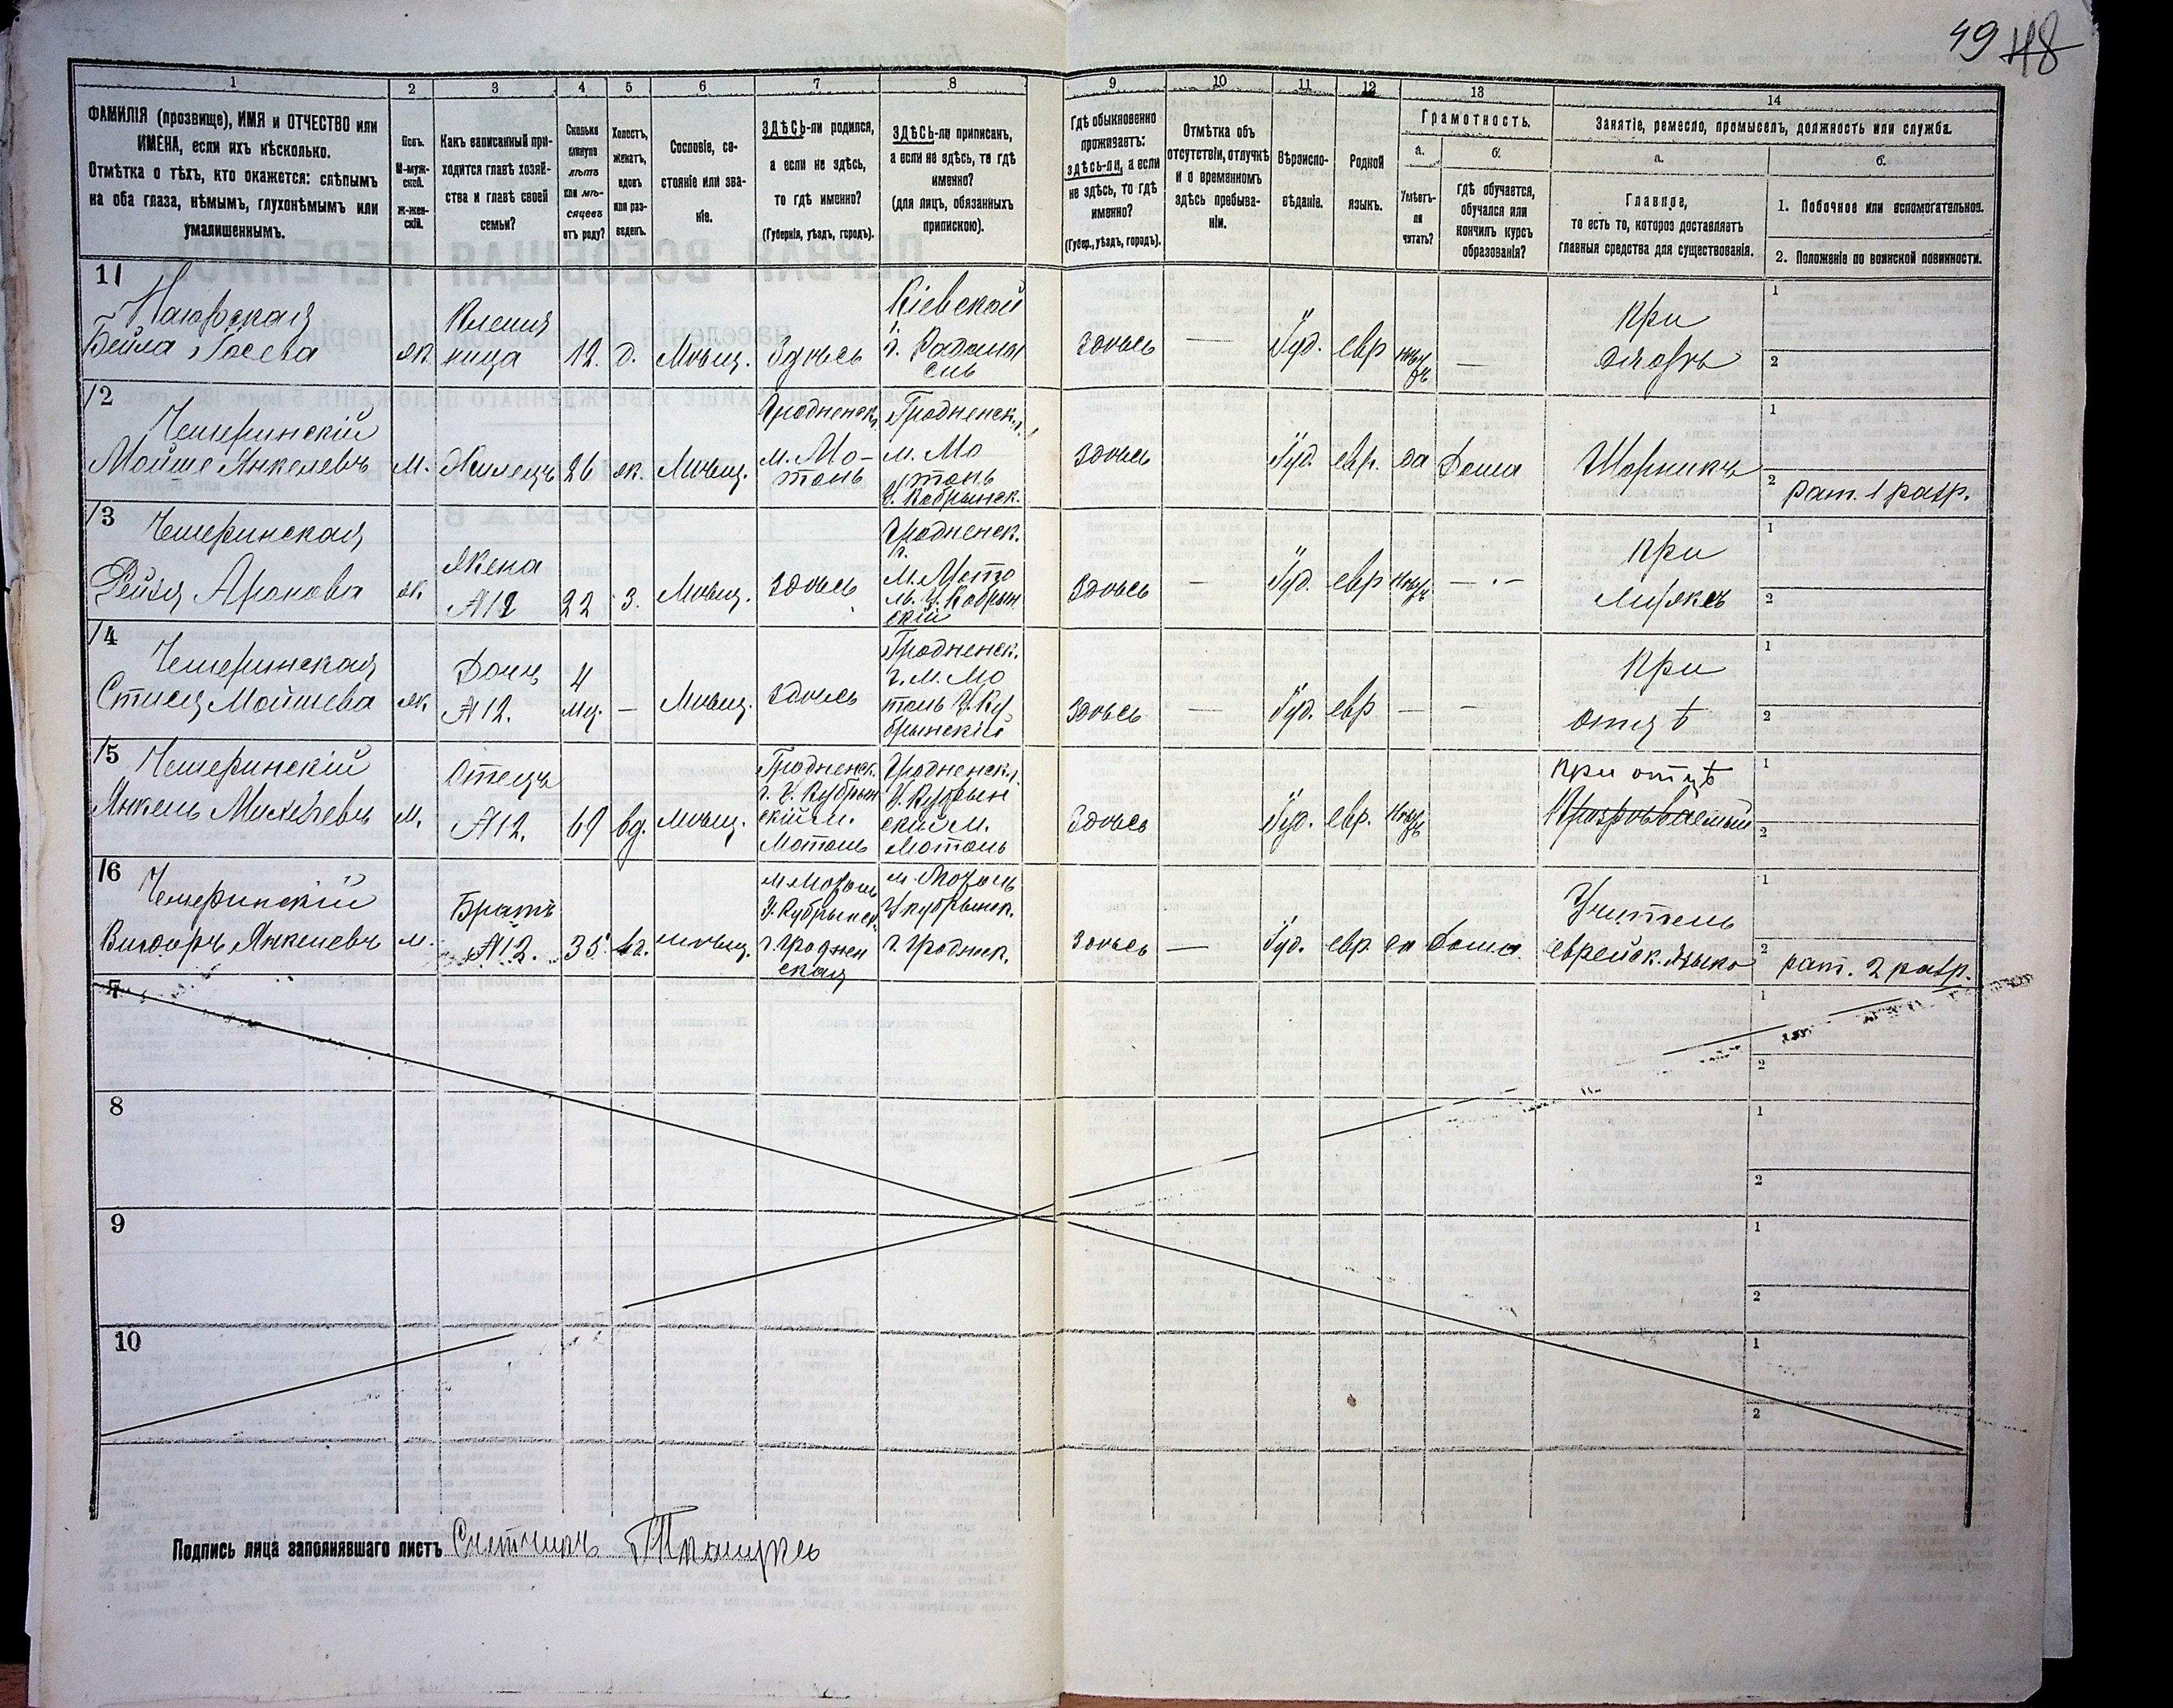 49 48
1 2 3 4 5 6 7 8 9 10 11 12 13 14
ФАМИЛІЯ (прозвище), ИМЯ и ОТЧЕСТВО или
ИМЕНА, если ихъ нѣсколько.
Отмѣтка о тѣхъ, кто окажется: слѣпымъ
на оба глаза, нѣмымъ, глухонѣмымъ или
умалишеннымъ.
Полъ.
М-муж-
ской.
Ж-жен-
скій.
Какъ записанный при-
ходится главѣ хозяй-
ства и главѣ своей
семьи?
Сколько
минуло
лѣтъ
или мѣ-
сяцевъ
отъ роду?
Холостъ,
женатъ,
вдовъ
или раз-
веденъ.
Сословіе, со-
стояніе или зва-
ніе.
ЗДѢСЬ-ли родился,
а если не здѣсь,
то гдѣ именно?
(Губернія, уѣздъ, городъ).
ЗДѢСЬ-ли приписанъ,
а если не здѣсь, то гдѣ
именно?
(для лицъ, обязанныхъ
припискою).
Гдѣ обыкновенно
проживаетъ:
здѣсь-ли, а если
не здѣсь, то гдѣ
именно?
(Губер., уѣздъ, городъ).
Отмѣтка объ
отсутствіи, отлучкѣ
и о временномъ
здѣсь пребыва-
ніи.
Вѣроиспо-
вѣданіе.
Родной
языкъ.
Грамотность.
а.
Умѣетъ-
ли
читать?
б.
Гдѣ обучается,
обучался или
кончилъ курсъ
образованія?
Занятіе, ремесло, промыселъ, должность или служба.
а.
Главное,
то есть то, которое доставляетъ
главныя средства для существованія.
б.
1. Побочное или вспомогательное.
2. Положеніе по воинской повинности.
11
Бейла
ж. Племян
ница
12. д. Мѣщ. Здѣсь
Кіевской
г. Радомы
сль
Здѣсь — Іуд. евр —
При
дядѣ
1
2
12
Чемеринскій
Мойше Янкелевъ м. Жилецъ 26 ж. Мѣщ.
Гродненск.
м. Мо-
толь
Гродненск. г.
м. Мо
толь
У. Кобрынск.
Здѣсь Іуд. евр. да Дома Шорникъ
1
2 рат. 1 разр.
13
Чемеринская
Рейзя Аронова ж.
Жена
№12
22 З. Мѣщ. Здѣсь
Гродненск.
г.
м. Мото
ль У. Кобрын
скій
Здѣсь — Іуд. евр —
При
мужѣ
1
2
14
Чемеринская
Мойшева ж.
Дочь
№12.
4
мц. — Мѣщ. Здѣсь
Гродненск.
г. м. Мо
толь У. Ку
брынскій
Здѣсь — Іуд. евр — —
При
отцѣ
1
2
15
Чемеринскій
Янкель м.
Отецъ
№12.
69 вд. мѣщ.
Гродненск.
г. У. Кубрын
скій м.
Мотоль
Гродненск г.
У. Кубрын
скій м.
Мотоль
Здѣсь Іуд. евр.
при отцѣ
1
2
16
Чемеринскій
Янкелевъ м.
Братъ
№12.
35 мѣщ.
м Мотоль
У. Кубрынск.
г. Гроднен
ская
м. Мотоль
У кубрынск.
г. Гроднен.
Здѣсь — Іуд. евр да Дома
Учитель
еврейск. языка
1
2 рат. 2 разр.
7
1
2
8
1
2
9
1
2
10
1
2
Подпись лица заполнявшаго листъ Счетчикъ